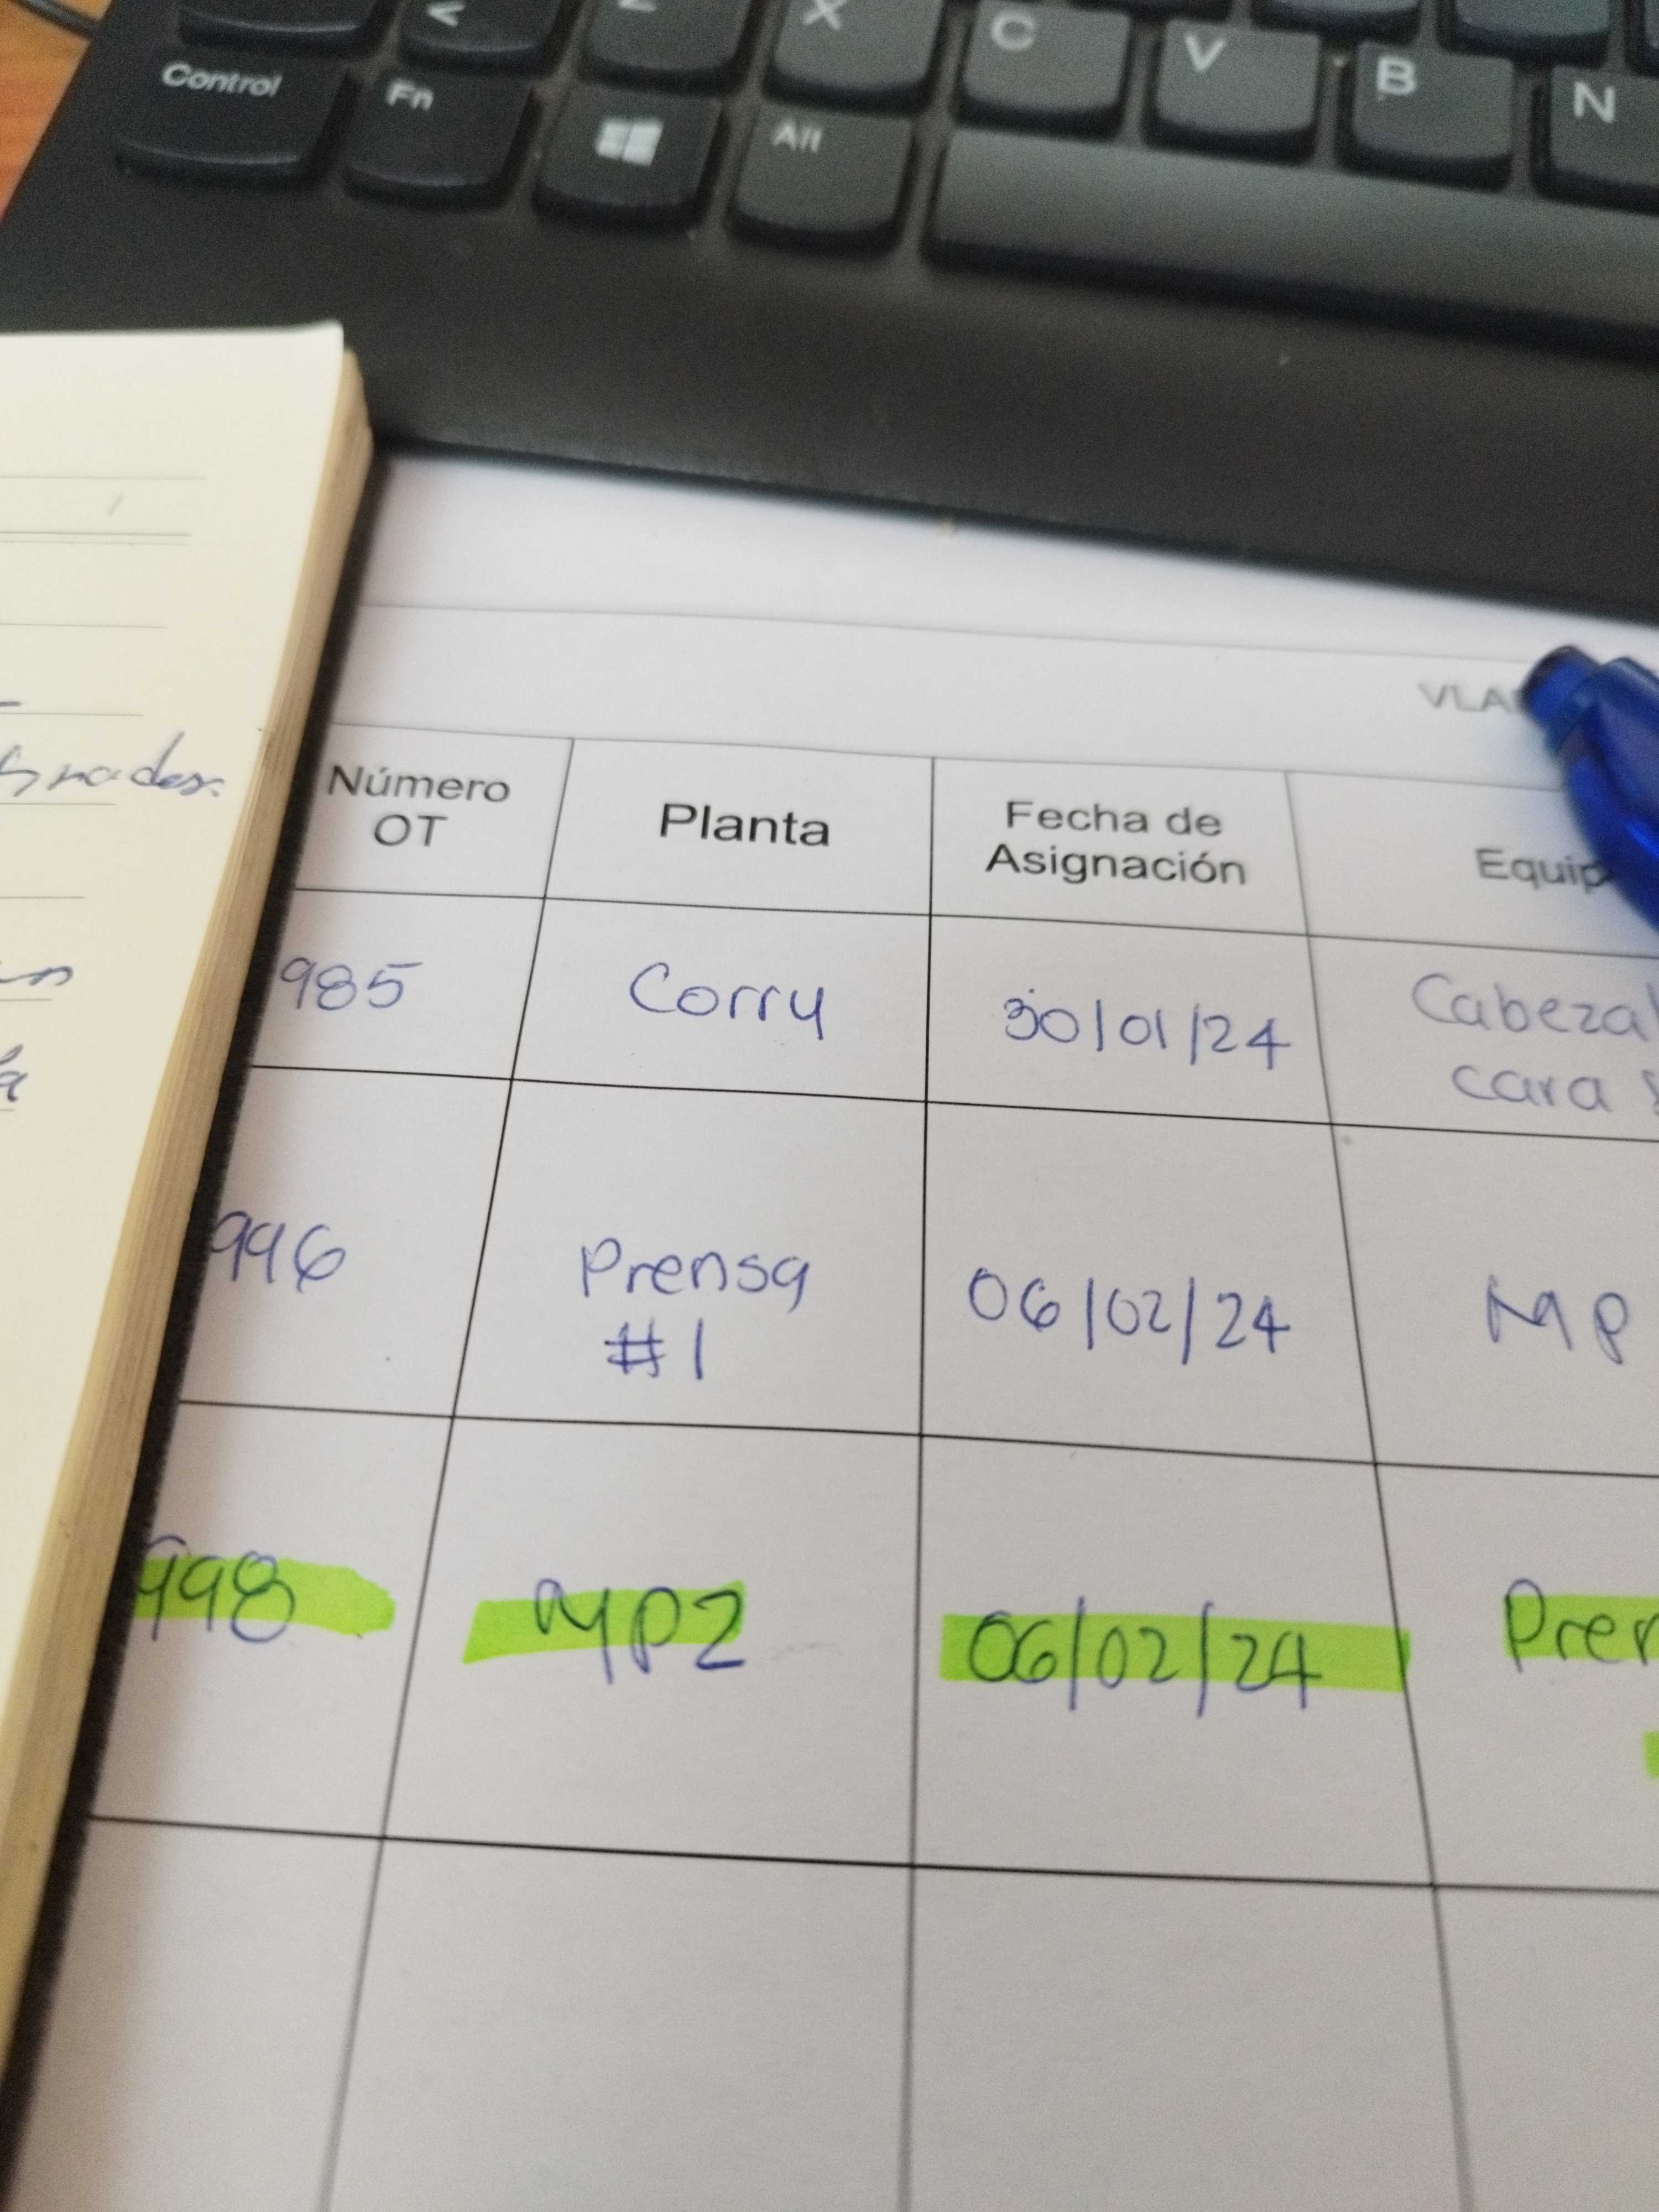 < Z X C V B N
Control Fn Alt
VLA
Número OT
Planta
Fecha de Asignación
Equip
985 Corry 30/01/24 Cabezal
cara
996 Prensa #1 06/02/24 MP
998 MP2 06/02/24 Pren